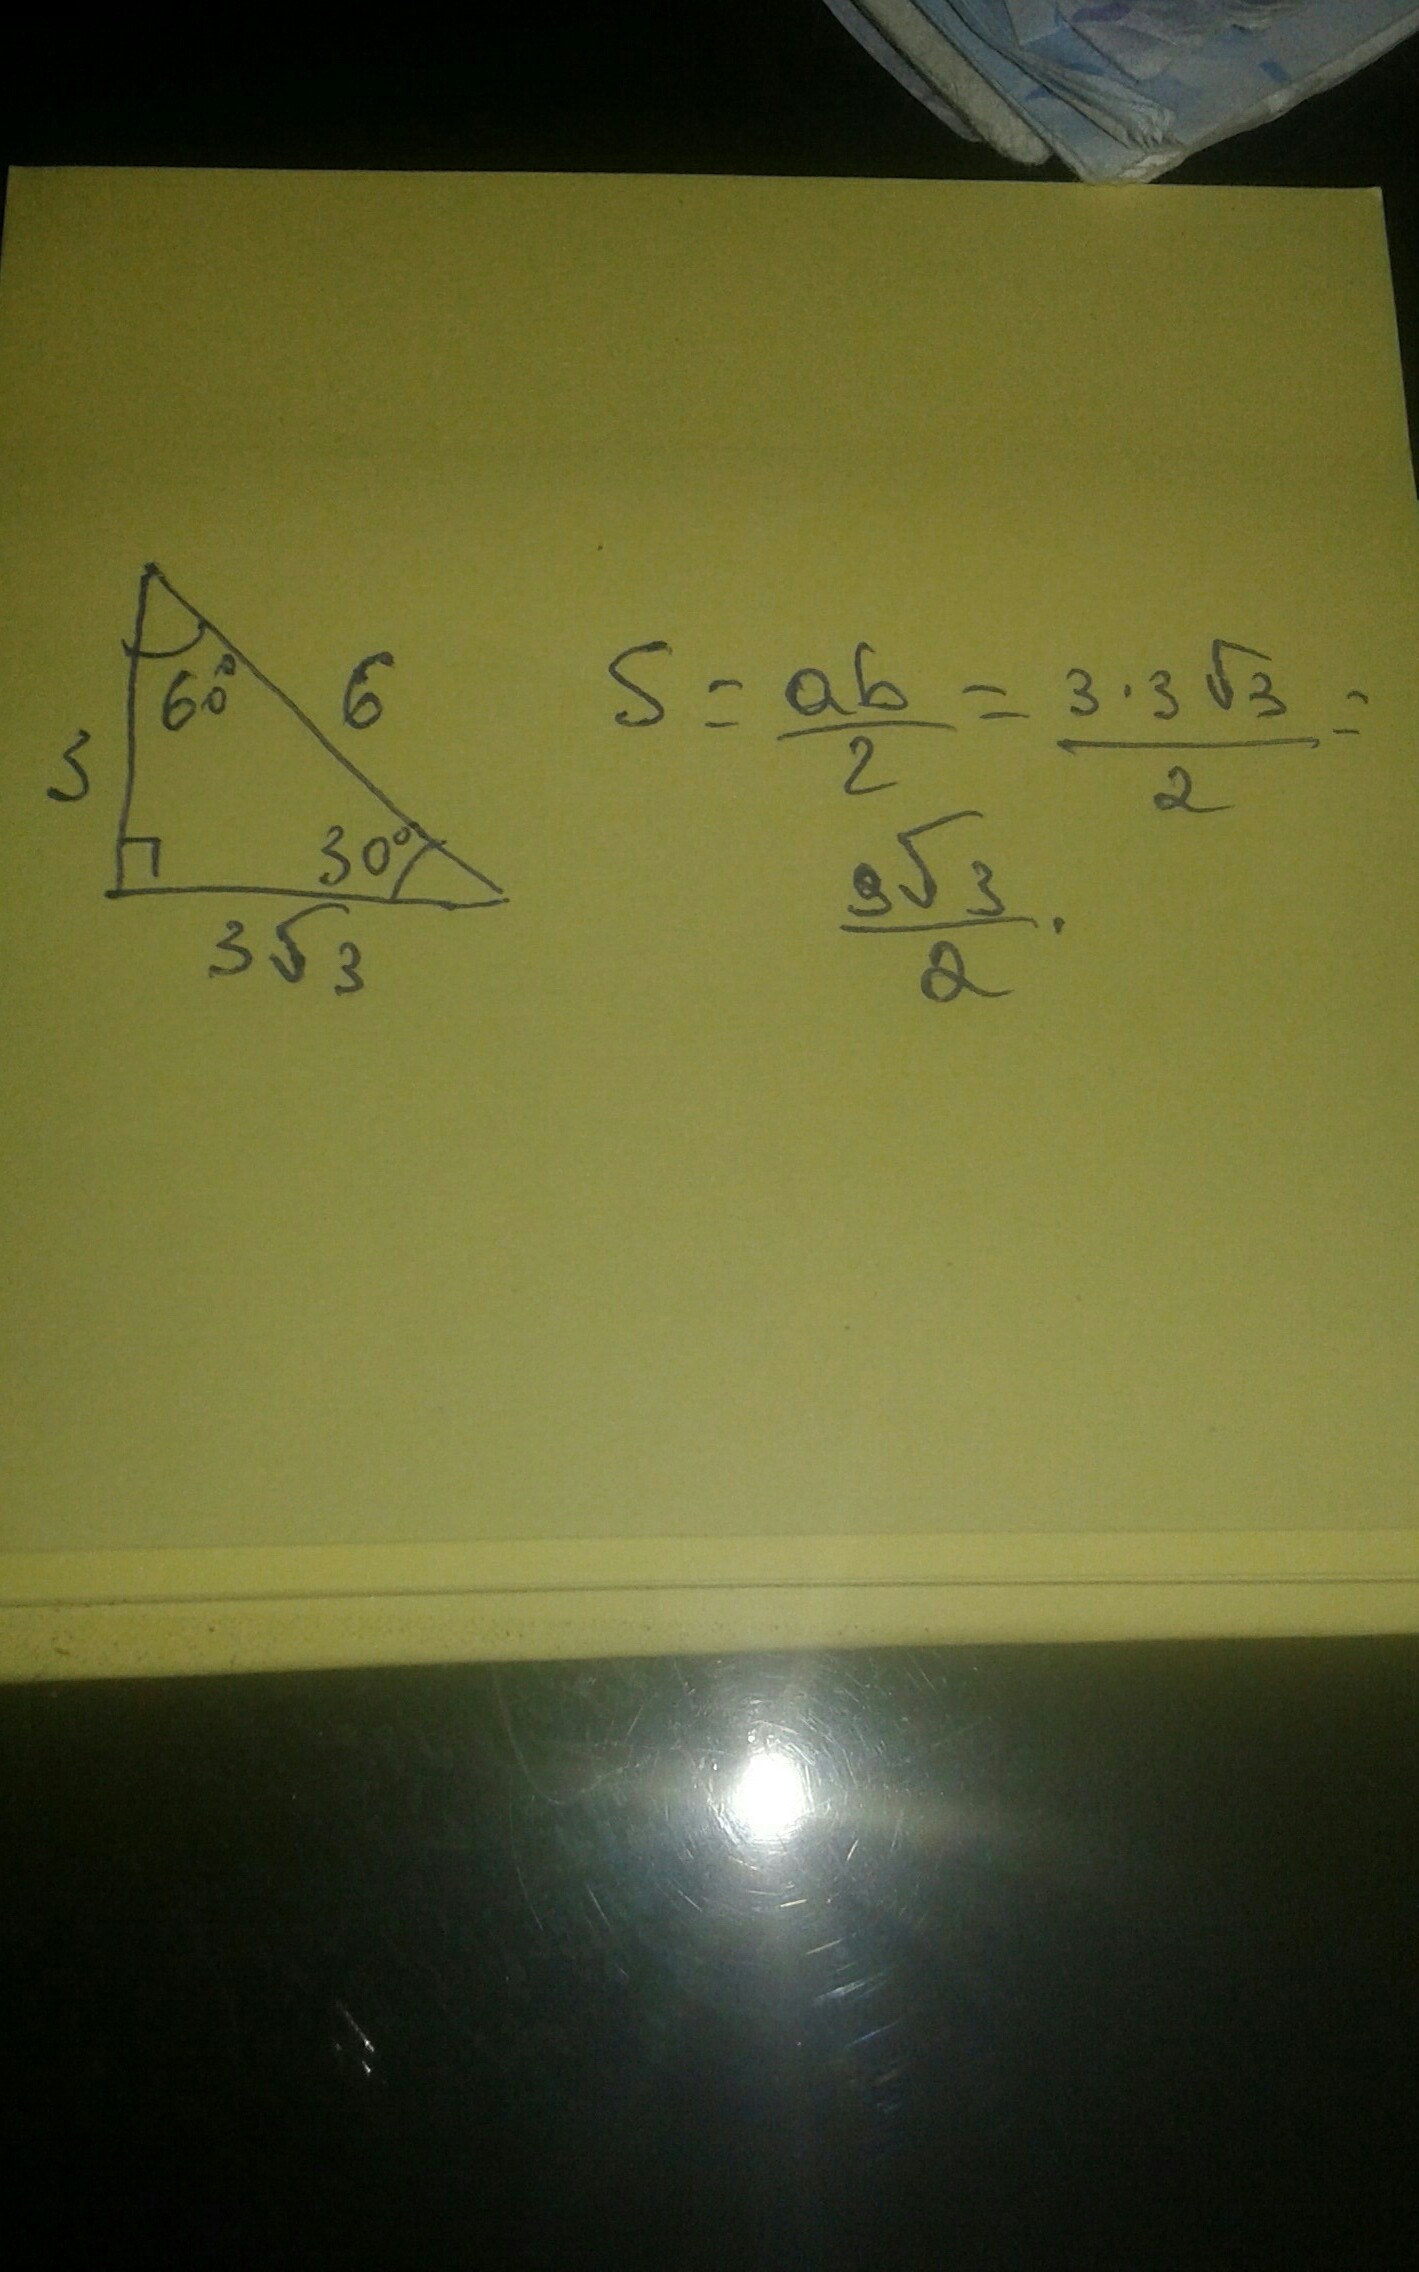 60°
6
3
30°
3√3
S = ab/2 = 3·3√3/2 =
9√3/2.